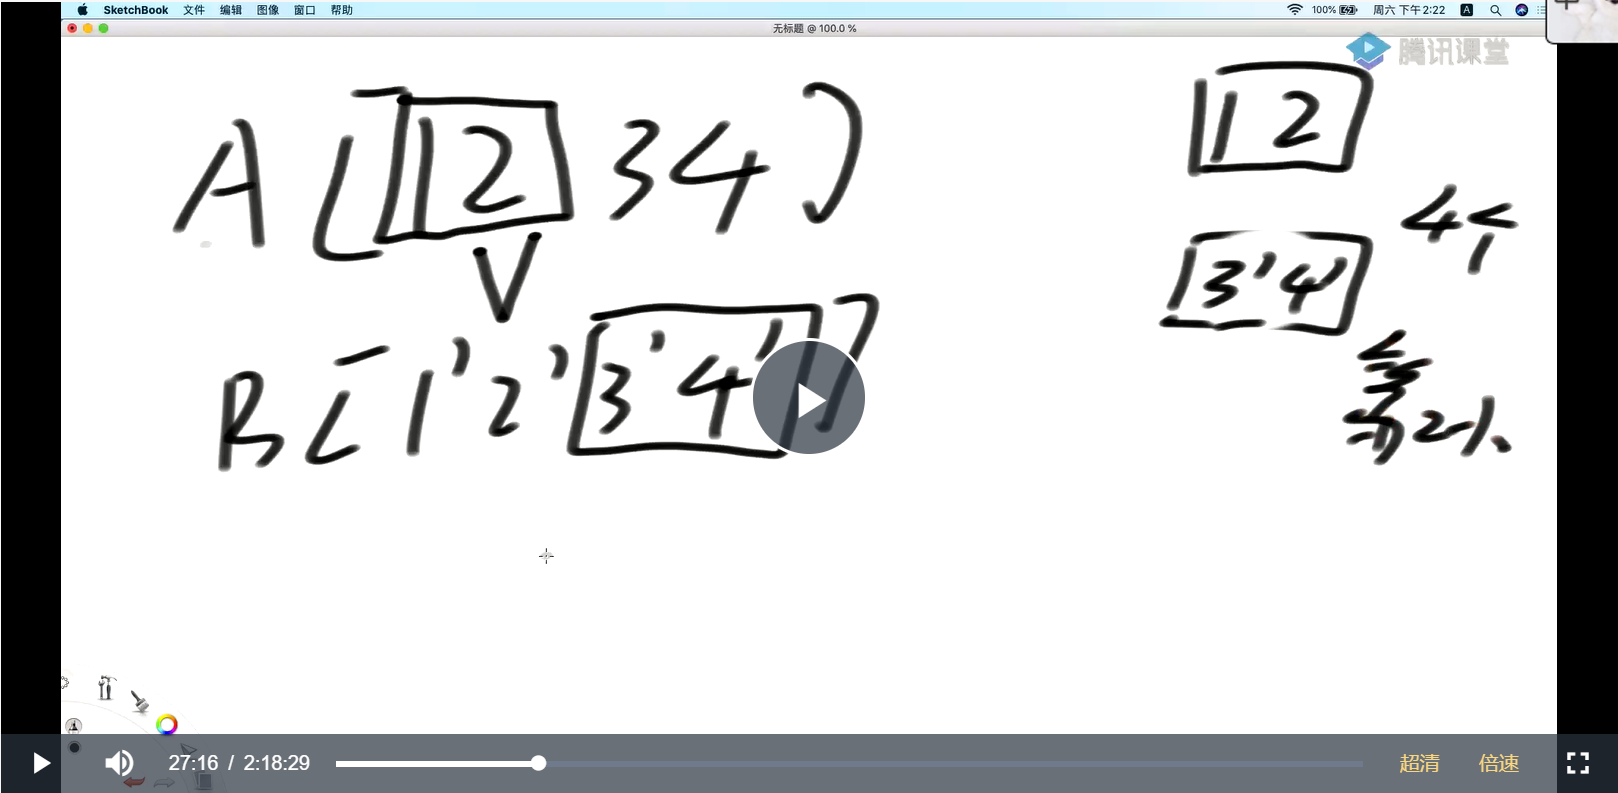 SketchBook 文件 编辑 图像 窗口 帮助 100% 周六 下午2:22 A
无标题 @ 100.0 %
腾讯课堂
A [ 1 2 3 4 ]
1 2
V
4个
3' 4'
B [ 1' 2' 3' 4' ]
第2小
27:16 / 2:18:29 超清 倍速